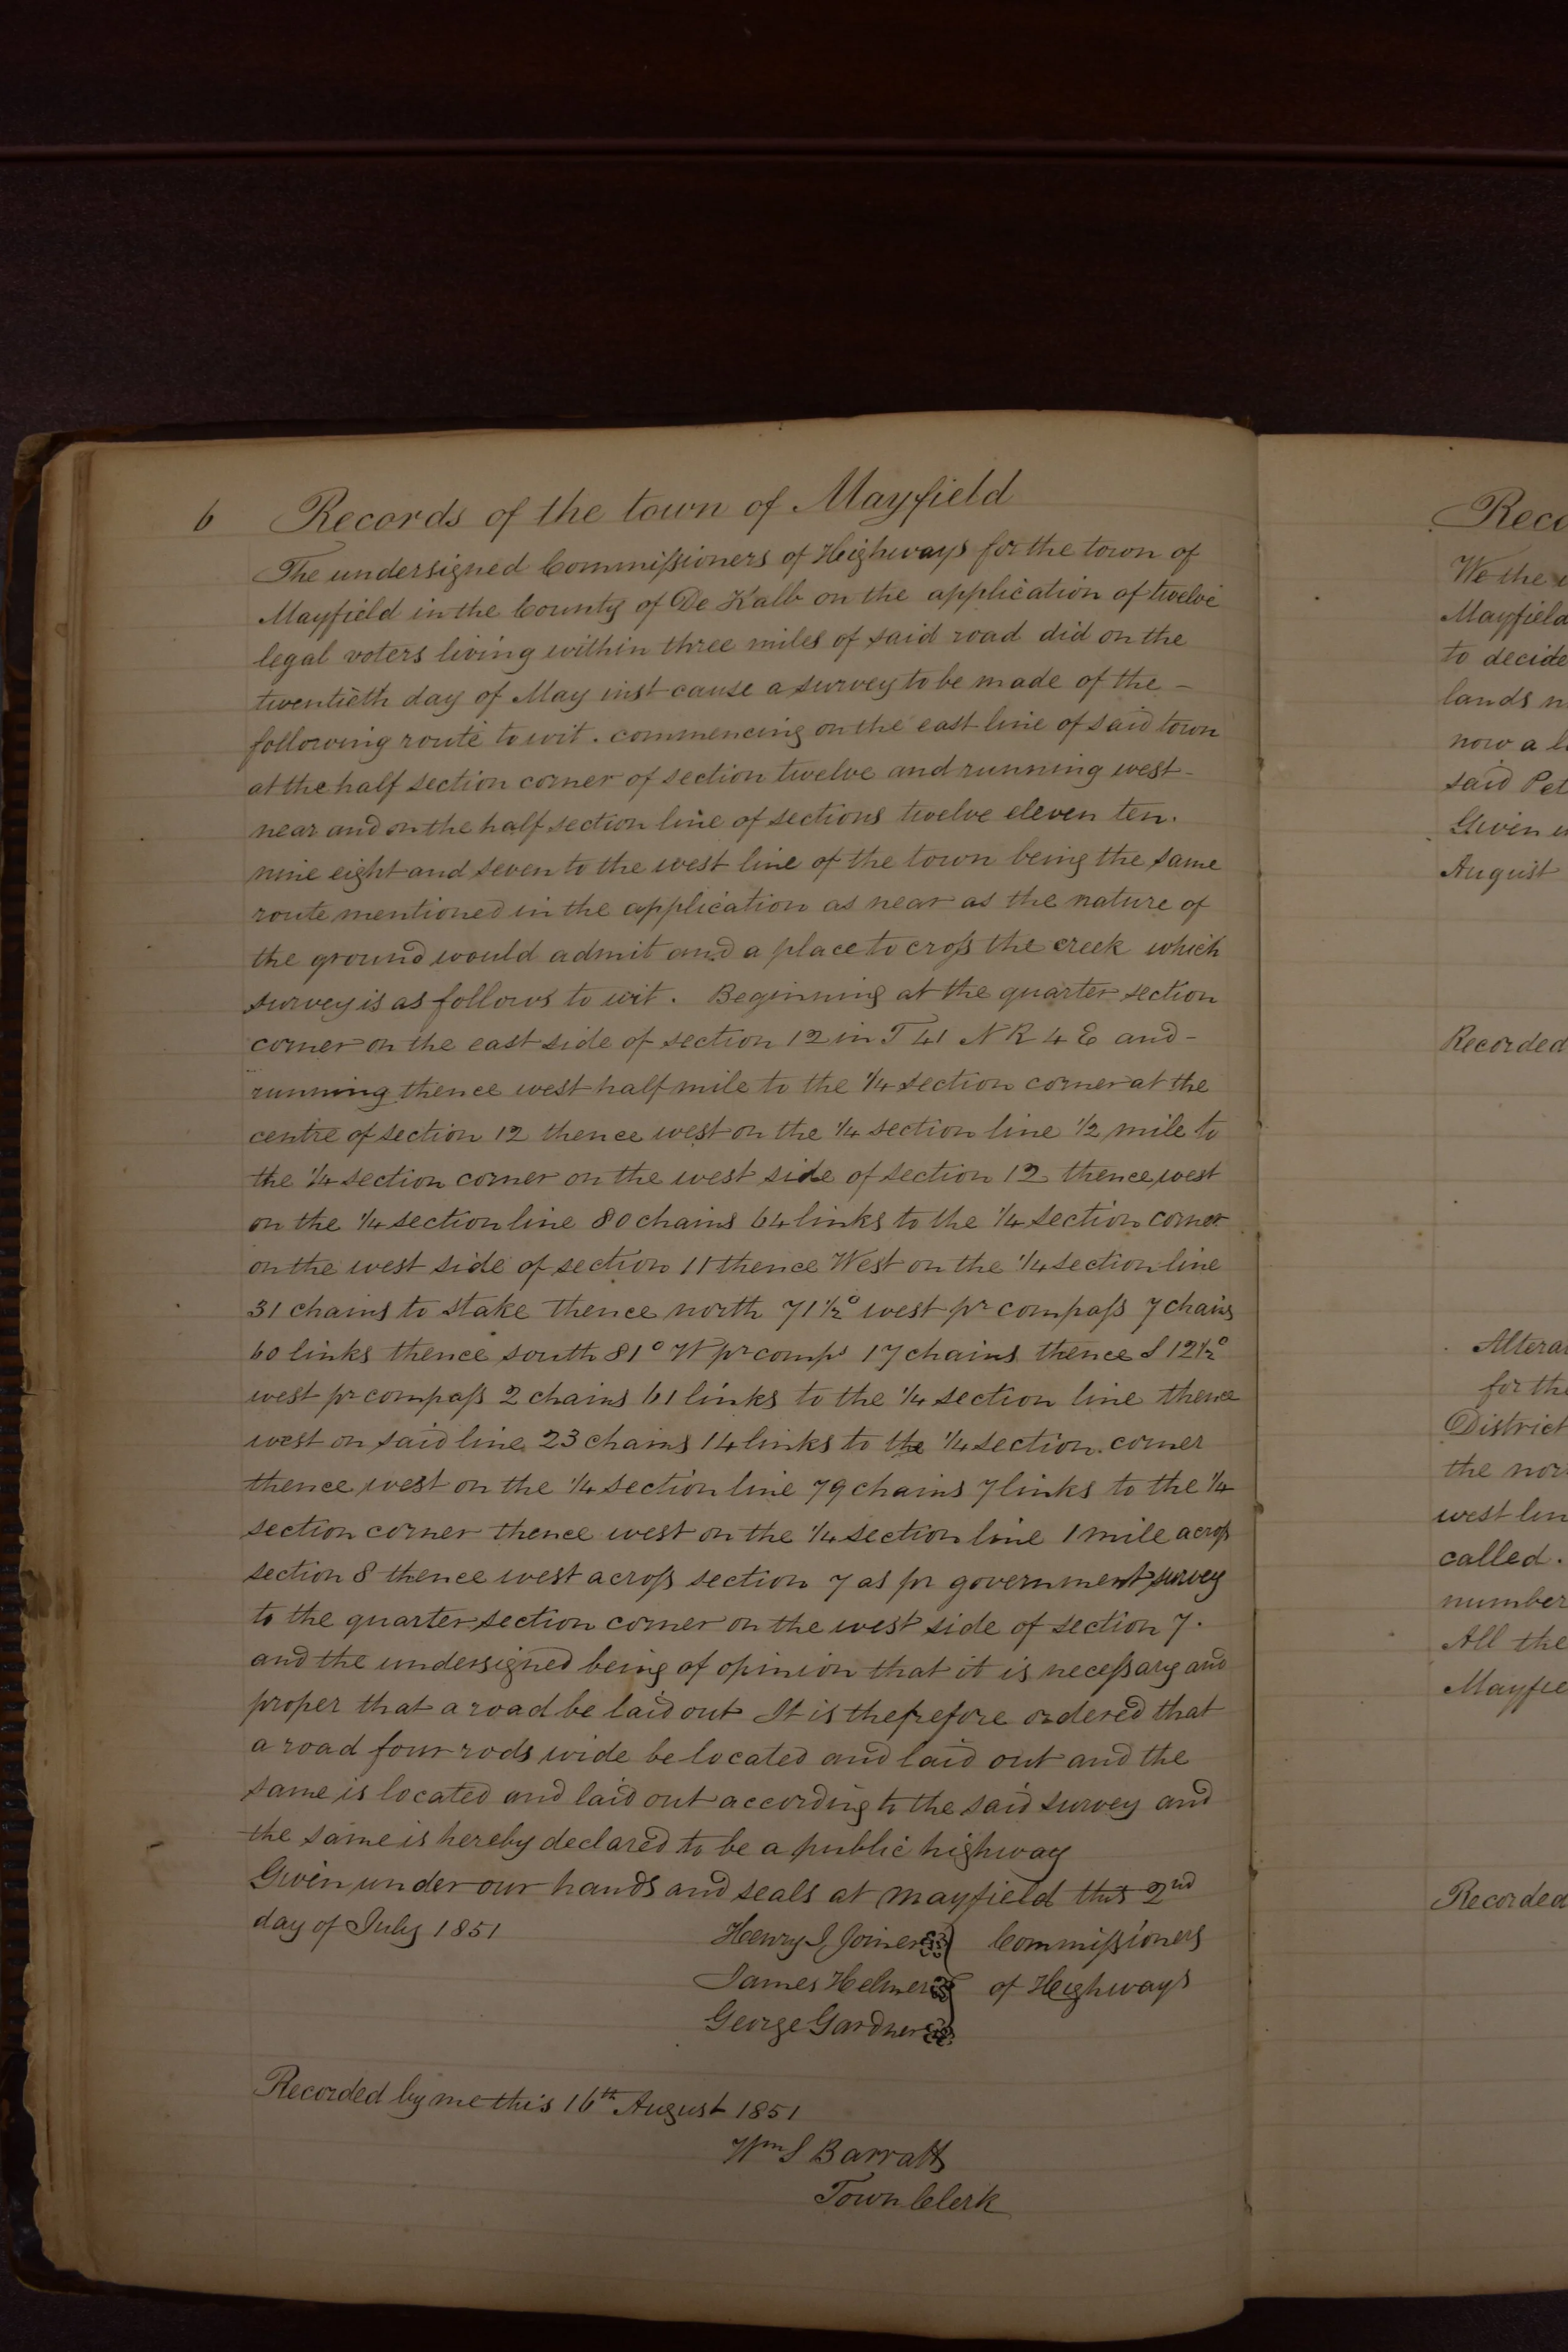 6 Records of the town of Mayfield
The undersigned Commissioners of Heighways for the town of
Mayfield in the County of De Kalb on the application of twelve
legal voters living within three miles of said road did on the
twentieth day of May inst cause a survey to be made of the –
following route to wit . commencing on the east line of said town
at the half section corner of section twelve and running west –
near and on the half section line of sections twelve eleven ten .
nine eight and seven to the west line of the town being the same
route mentioned in the application as near as the nature of
the ground would admit and a place to cross the creek which
survey is as follows to wit . Beginning at the quarter section
corner on the east side of section 12 in T 41 N R 4 E and –
running thence west half mile to the 1/4 section corner at the
centre of section 12 thence west on the 1/4 section line 1/2 mile to
the 1/4 section corner on the west side of section 12 thence west
on the 1/4 section line 80 chains 64 links to the 1/4 section corner
on the west side of section 11 thence West on the 1/4 section line
31 chains to stake thence north 71 1/2° west pr compass 7 chains
60 links thence south 81° W pr comps 17 chains thence S 12 1/2°
west pr compass 2 chains 61 links to the 1/4 section line thence
west on said line 23 chains 14 links to the 1/4 section corner
thence west on the 1/4 section line 79 chains 7 links to the 1/4
section corner thence west on the 1/4 section line 1 mile across
section 8 thence west across section 7 as pr government survey
to the quarter section corner on the west side of section 7 .
and the undersigned being of opinion that it is necessary and
proper that a road be laid out It is therefore ordered that
a road four rods wide be located and laid out and the
same is located and laid out according to the said survey and
the same is hereby declared to be a public highway
Given under our hands and seals at Mayfield this 2nd
day of July 1851
Henry I Joiner } Commissioners
James Helmer } of Heighways
George Gardner }
Recorded by me this 16th August 1851
Wm S Barratt
Town Clerk
Reco
We the
Mayfield
to decide
lands
now a
said Pet
Given
August
Recorded
Altera
for the
District
the nor
west lin
called .
number
All the
Mayfie
Recorded